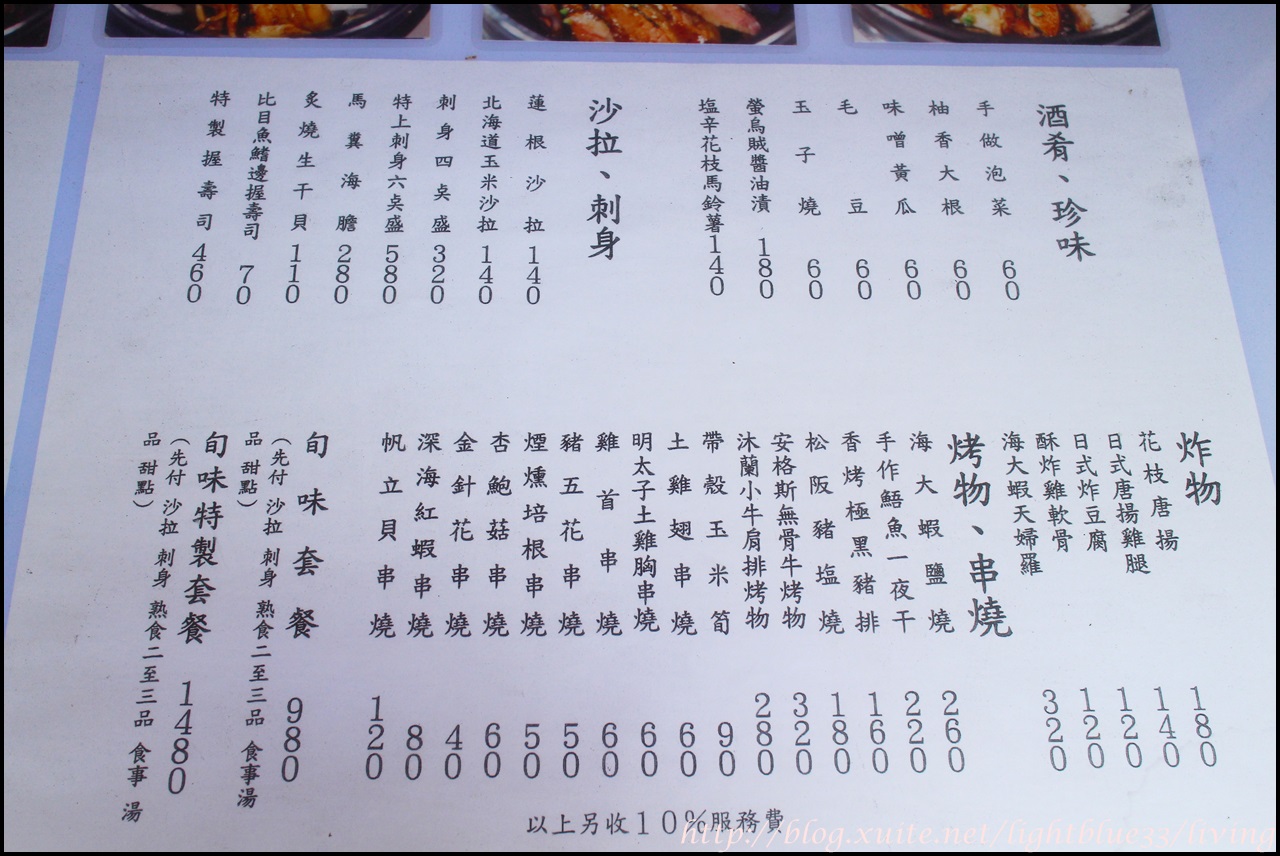 酒肴、珍味
手做泡菜 60
柚香大根 60
味噌黃瓜 60
毛豆 60
玉子燒 60
螢烏賊醬油漬 180
塩辛花枝馬鈴薯 140
沙拉、刺身
蓮根沙拉 140
北海道玉米沙拉 140
刺身四奌盛 320
特上刺身六奌盛 580
馬糞海膽 280
炙燒生干貝 110
比目魚鰭邊握壽司 70
特製握壽司 460
炸物
花枝唐揚 180
日式唐揚雞腿 140
日式炸豆腐 120
酥炸雞軟骨 120
海大蝦天婦羅 320
烤物、串燒
海大蝦鹽燒 260
手作鯃魚一夜干 220
香烤極黑豬排 160
松阪豬塩燒 180
安格斯無骨牛烤物 320
沐蘭小牛肩排烤物 280
帶殼玉米筍 90
土雞翅串燒 60
明太子土雞胸串燒 60
雞首串燒 60
豬五花串燒 50
煙燻培根串燒 50
杏鮑菇串燒 60
金針花串燒 40
深海紅蝦串燒 80
帆立貝串燒 120
旬味套餐 980
（先付 沙拉 刺身 熟食二至三品 食事湯
品 甜點）
旬味特製套餐 1480
（先付 沙拉 刺身 熟食二至三品 食事 湯
品 甜點）
以上另收10%服務費
http://blog.xuite.net/lightblue33/living